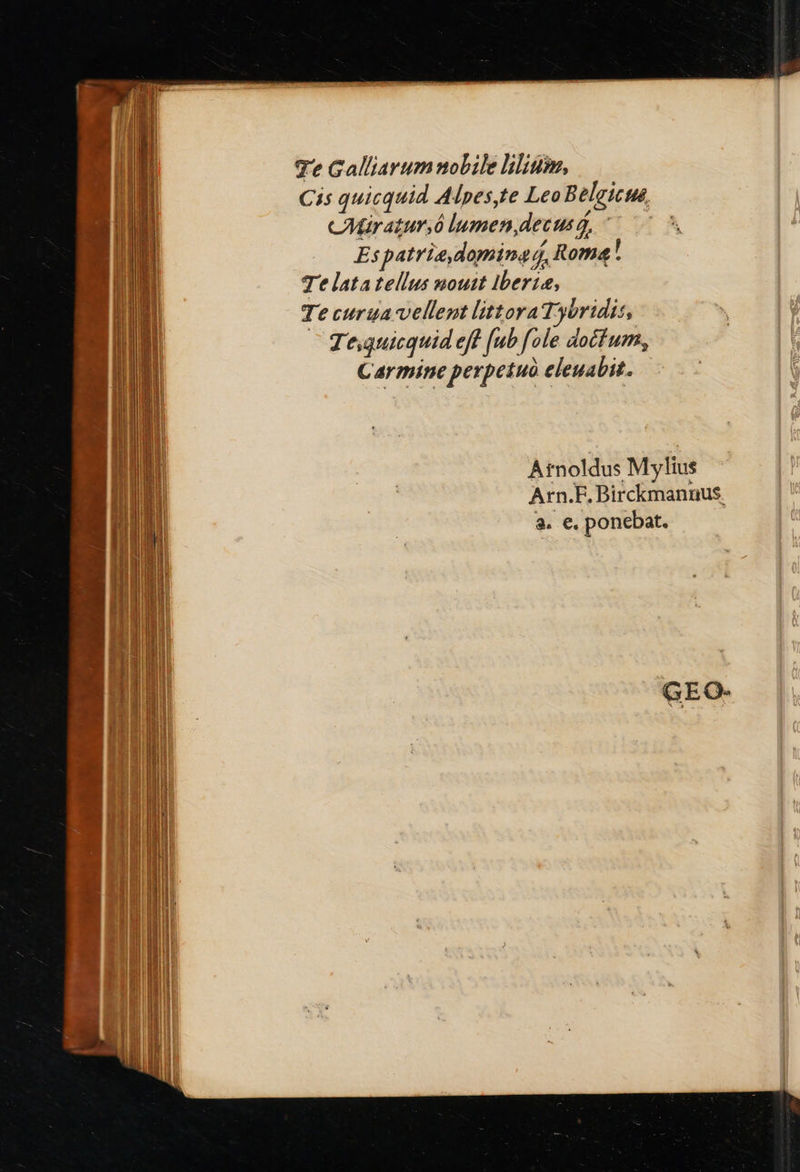 Te Galliarum nobile lilium,
Cis quicquid Alpes, te Leo Belgicus
Miratur, ô lumen, decusq́,
Es patriæ, dominaq́, Romæ!
Te lata tellus nouit Iberiæ,
Te curua vellent littora Tybridis,
Te, quicquid eſt ſub ſole doctum,
Carmine perpetuò eleuabit.
Arnoldus Mylius
Arn. F. Birckmannus
a. e. ponebat.
GEO-